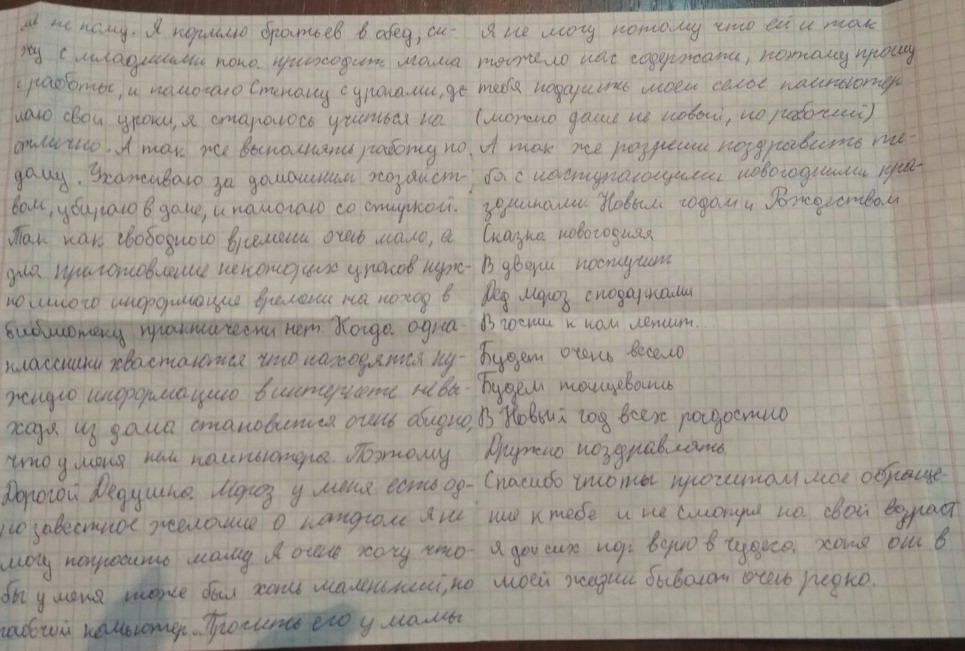 не кому. Я кормлю братьев в обед, си-
жу с младшими пока приходит мама
с работы, и помогаю Степану с уроками, де
лаю свои уроки, я стараюсь учиться на
отлично. А так же выполнять работу по
дому. Ухаживаю за домашним хозяйст-
вом, убираю в доме, и помогаю со стиркой.
Так как свободного времени очень мало, а
для приготовление некоторых уроков нуж-
но много информацие времени на поход в
библиотеку практически нет. Когда одно-
классники хвастаются что находятся ну-
жную информацию в интернете не вы-
ходя из дома становится очень обидно,
что у меня нет компьютера. Поэтому
Дорогой Дедушка Мороз у меня есть од-
но заветное желание о котором я не
могу попросить маму. Я очень хочу что-
бы у меня тоже был хоть маленький, но
рабочий компьютер. Просить его у мамы
Я не могу потому что ей и так
тяжело нас содержать, поэтому прошу
тебя подарить моей семье компьютер
(можно даже не новый, но рабочий)
А так же разреши поздравить те-
бя с наступающими новогодними праз-
здниками Новым годом и Рождеством
Сказка новогодняя
В двери постучит
Дед Мороз с подарками
В гости к нам летит.
Будет очень весело
Будем танцевать
В Новый год всех радостно
Дружно поздравлять.
Спасибо что ты прочитал мое обраще-
ние к тебе и не смотря на свой возраст
я до сих пор верю в чудеса. хотя они в
моей жизни бывают очень редко.